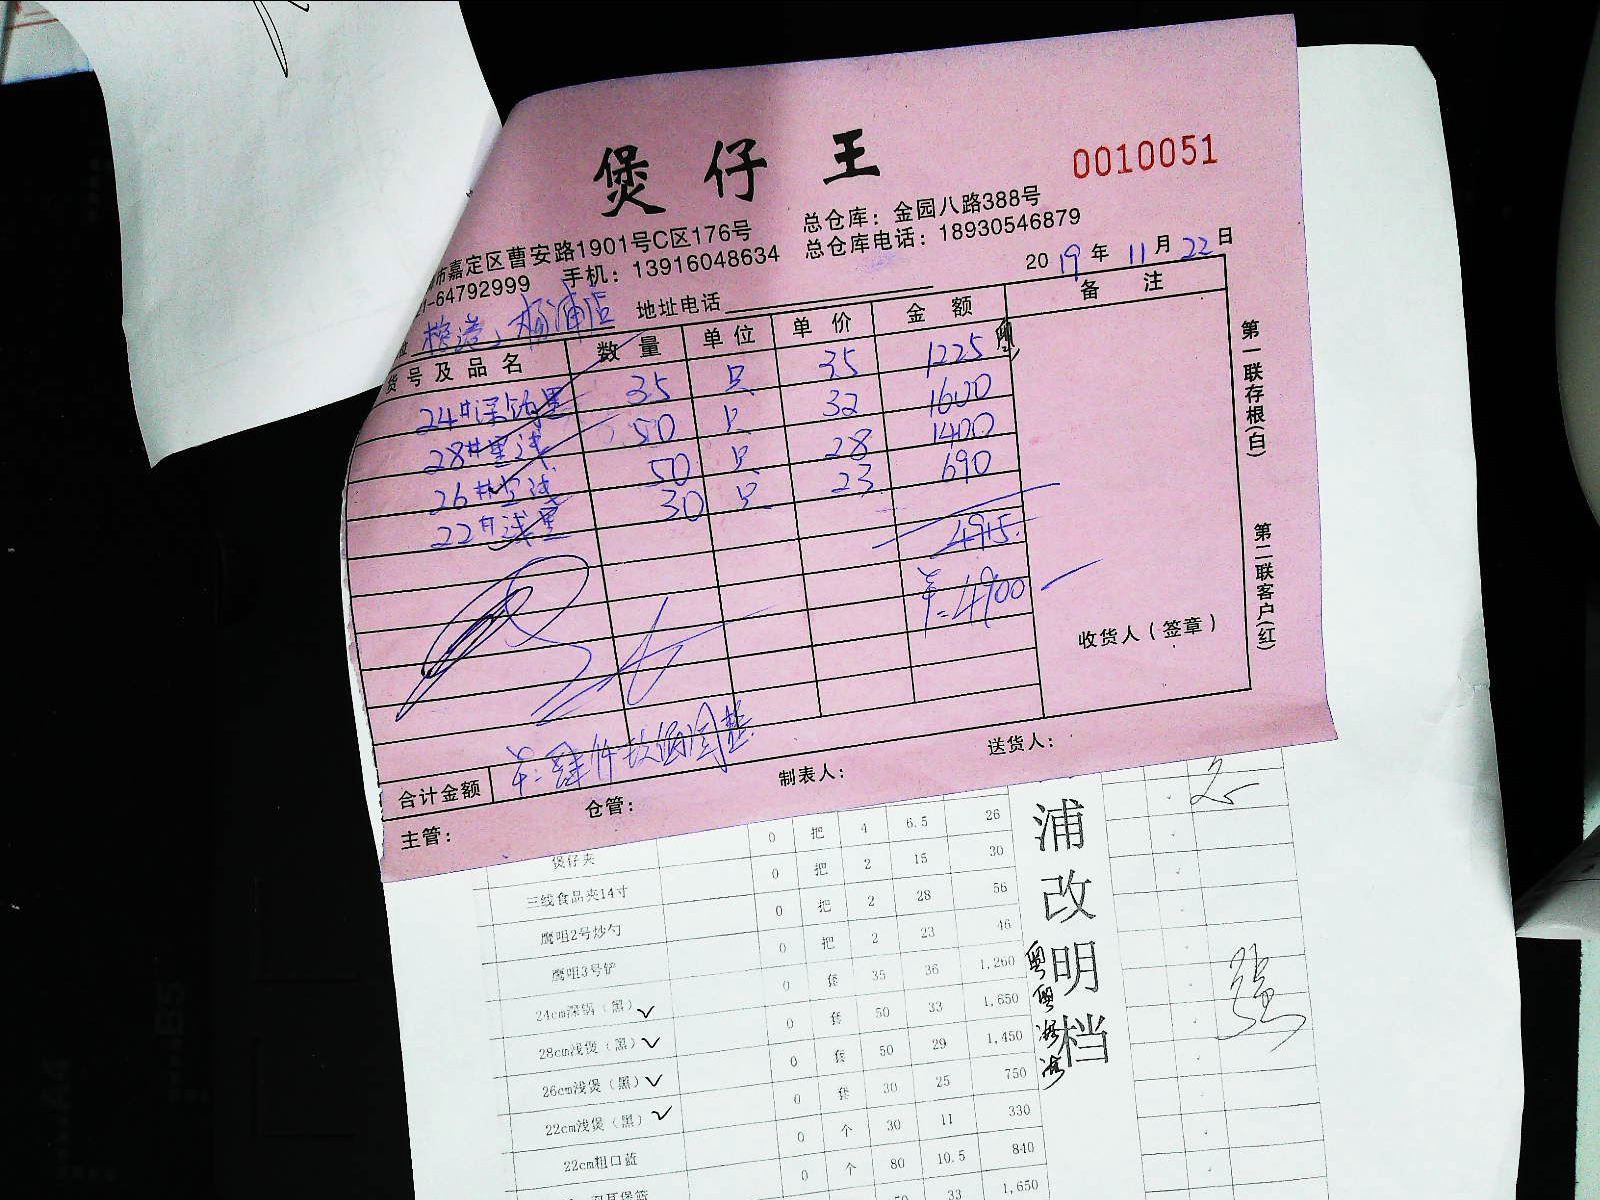 煲仔王
0010051
市嘉定区曹安路1901号C区176号 总仓库：金园八路388号
-64792999 手机：13916048634 总仓库电话：18930546879
2019年11月22日
杨浦店 地址电话
货号及品名 数量 单位 单价 金额 备注
24#深锅黑 35 只 35 1225
28#黑浅 50 只 32 1600
26#黑浅 50 只 28 1400
22#浅黑 30 只 23 690
4915.
¥:4900
收货人（签章）
第一联存根(白)
第二联客户(红)
合计金额
主管： 仓管： 制表人： 送货人：
煲仔夹 0 把 4 6.5 26
三线食品夹14寸 0 把 2 15 30
鹰咀2号炒勺 0 把 2 28 56
鹰咀3号铲 0 把 2 23 46
24cm深锅（黑） 0 套 35 36 1,260
28cm浅煲（黑） 0 套 50 33 1,650
26cm浅煲（黑） 0 套 50 29 1,450
22cm浅煲（黑） 0 套 30 25 750
22cm粗口蓝 0 个 30 11 330
0 个 80 10.5 840
50 33 1,650
浦改明档
强